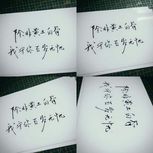 除非黄土白骨
我守你百岁无忧
除非黄土白骨
我守你百岁无忧
除非黄土白骨
我守你百岁无忧
除非黄土白骨
我守你百岁无忧